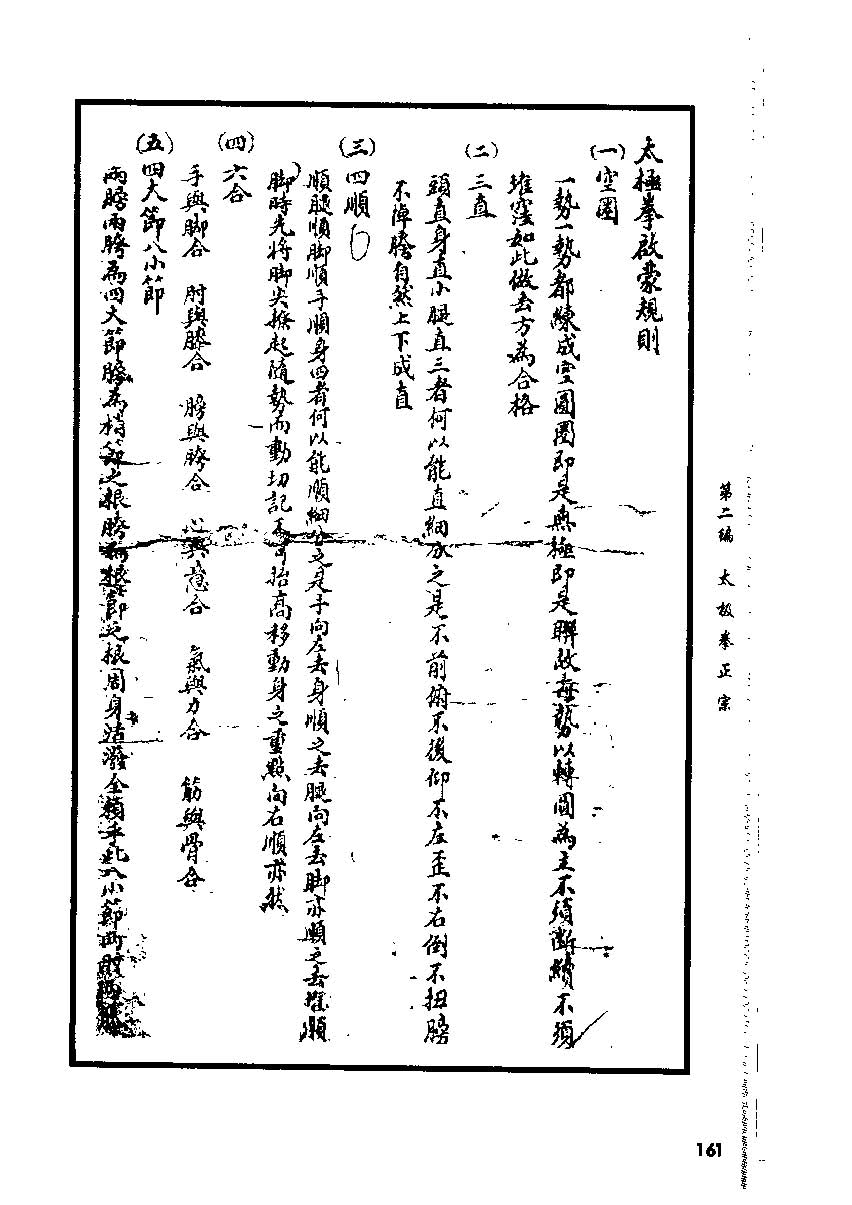 太極拳啟蒙規則
(一)空圈
一勢一勢都練成空圈圈即是無極即是聯故每勢以轉圓為主不須斷續不須
堆窪如此做去方為合格
(二)三直
頭直身直小腿直三者何以能直細分之是不前俯不後仰不左歪不右倒不扭膀
不掉胯自然上下成直
(三)四順
順腿順脚順手順身四者何以能順細分之是手向左去身順之去腿向左去脚亦順之去惟順
脚時先將脚尖撩起隨勢而動切記不可抬高移動身之重點向右順亦然
(四)六合
手與脚合 肘與膝合 膀與胯合 心與意合 氣與力合 筋與骨合
(五)四大節八小節
兩膀兩胯為四大節膀為梢節之根胯為根節之根周身活潑全賴乎此八小節兩肱兩膝
第二编 太极拳正宗
161